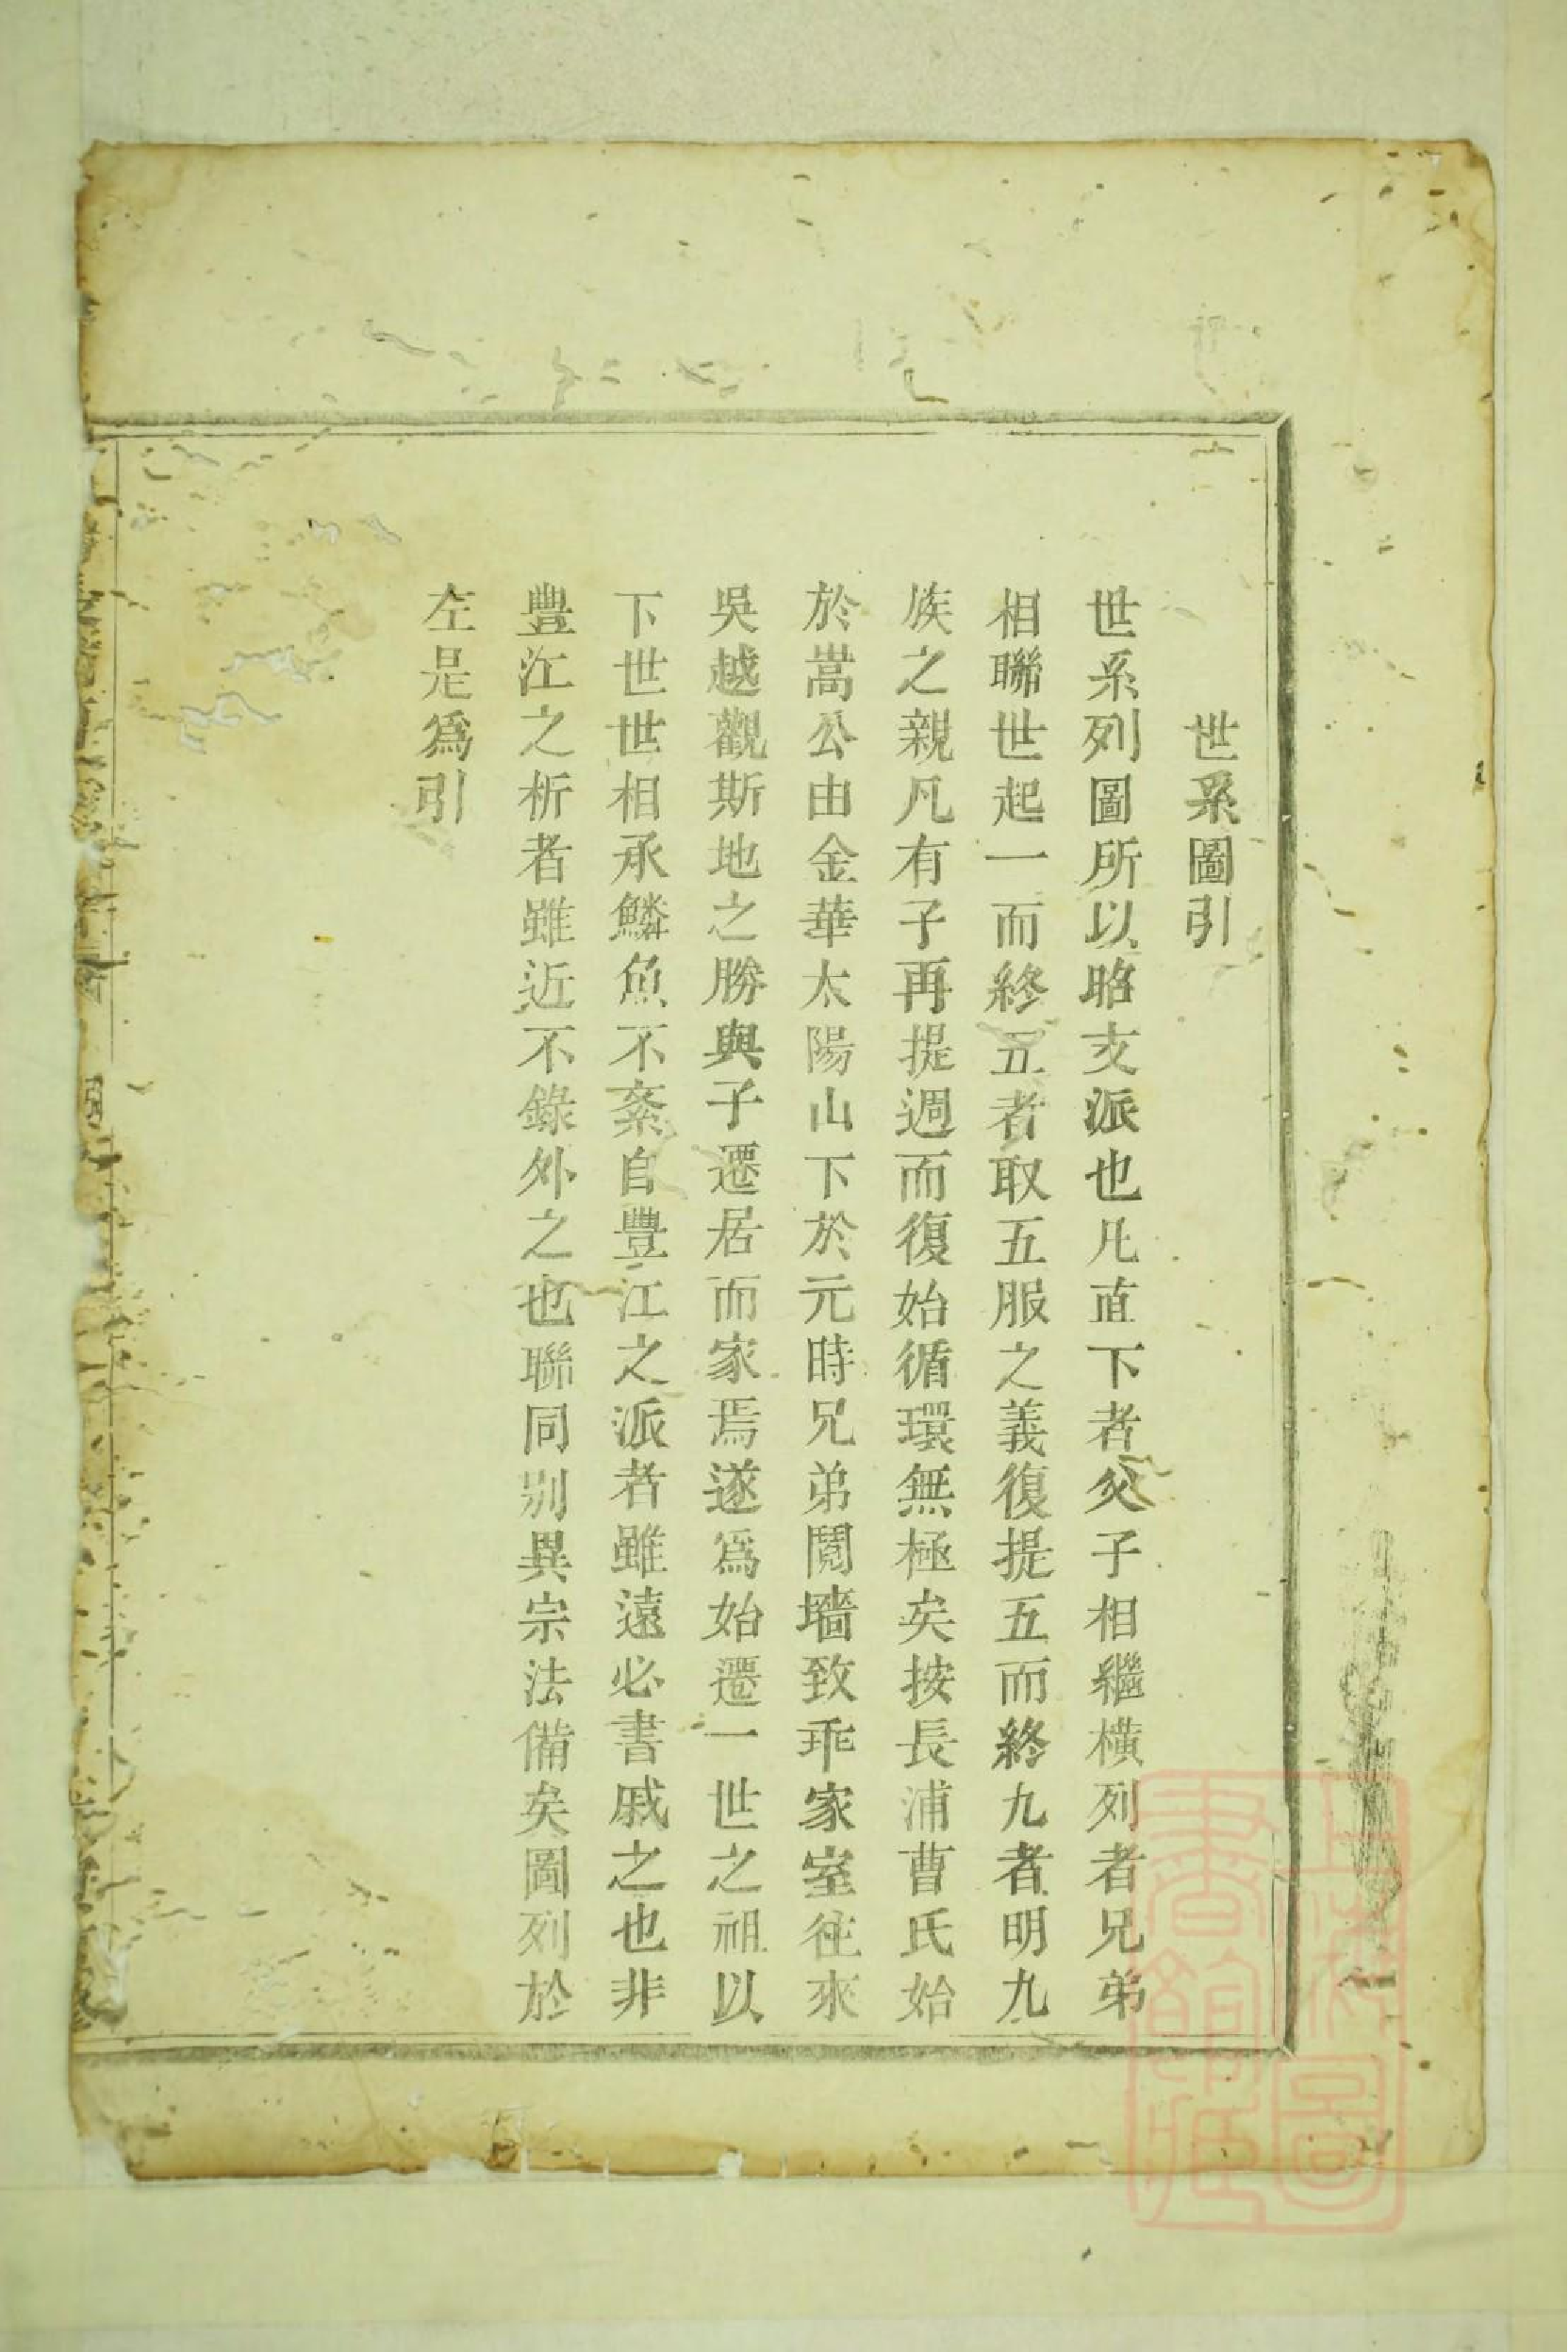 世系圖引
世系列圖所以昭支派也凡直下者父子相繼橫列者兄弟
相聯世起一而終五者取五服之義復提五而終九者明九
族之親凡有子再提週而復始循環無極矣按長浦曹氏始
於嵩公由金華太陽山下於元時兄弟鬩墻致乖家室往來
吳越觀斯地之勝與子遷居而家焉遂爲始遷一世之祖以
下世世相承鱗魚不紊自豐江之派者雖遠必書戚之也非
豐江之析者雖近不錄外之也聯同別異宗法備矣圖列於
左是爲引
上海圖
書館藏